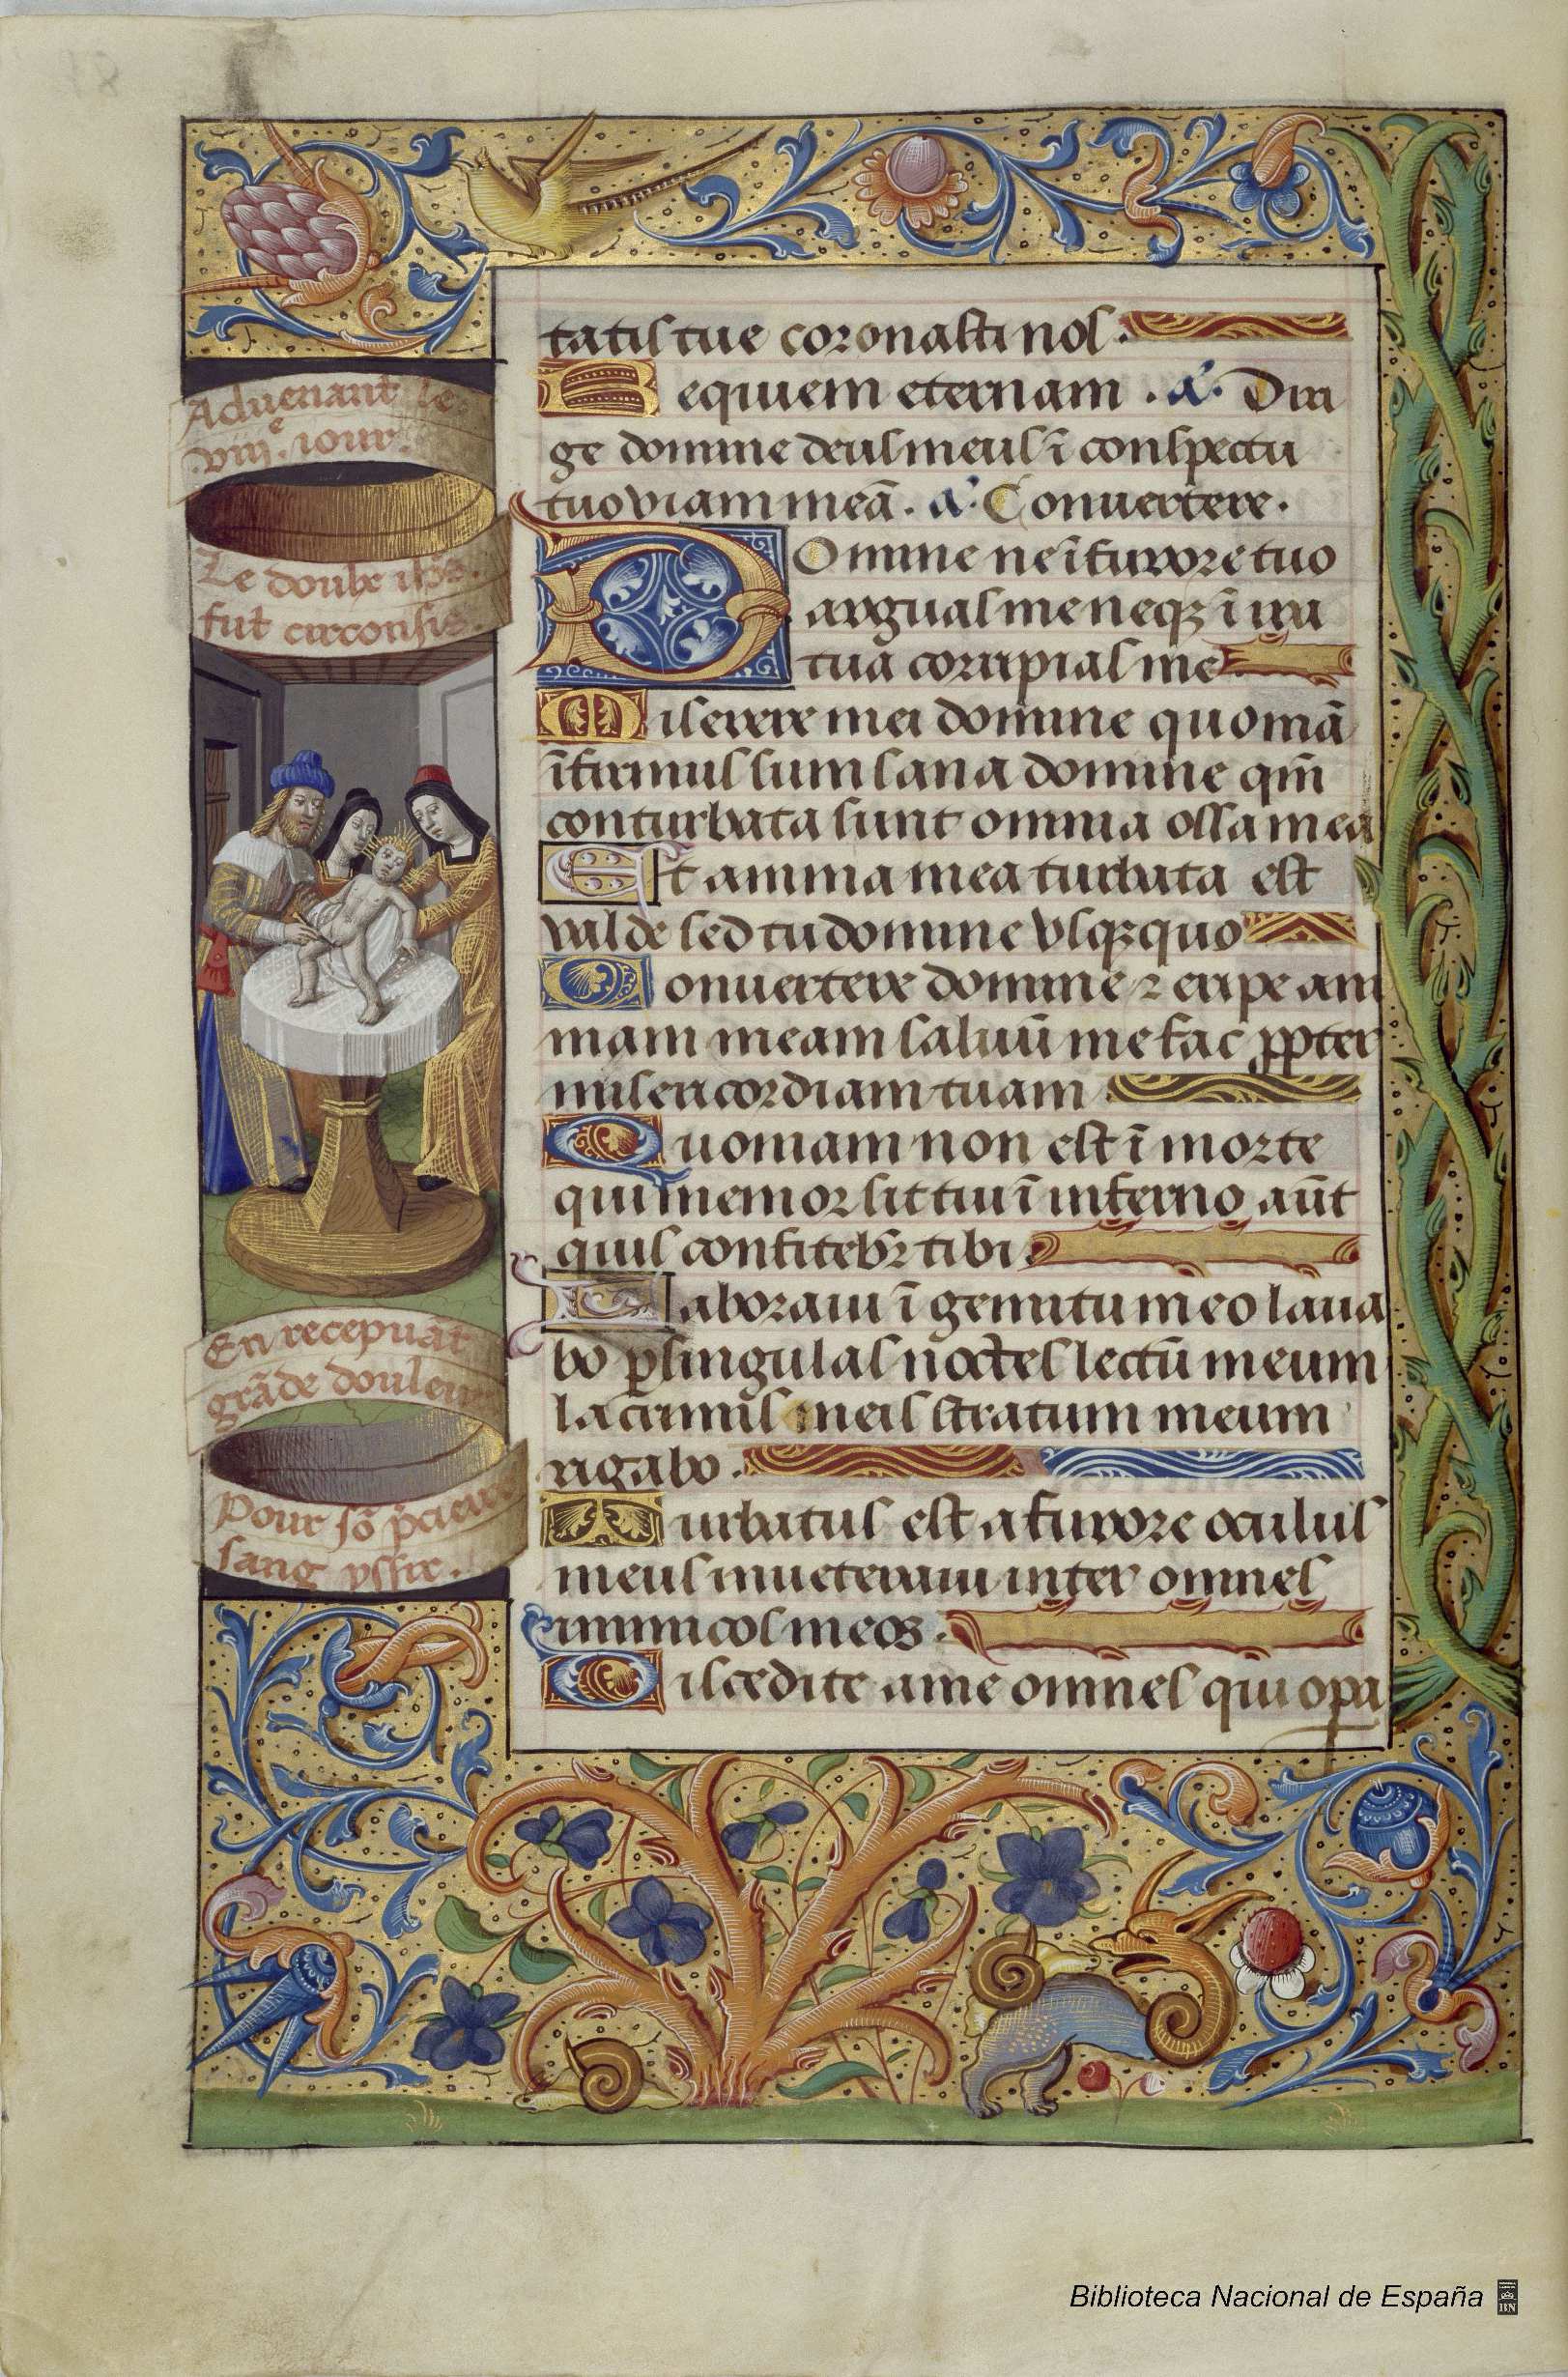 Aduenant le
.viii.e iour.
Le doulx ihs.
fut circonsis.
En recepuāt
grāde douleur
Pour sō p̄cieux
sang yssir.
tatis tue coronasti nos.
Requiem eternam . a. Diri
ge domine deus meus ī conspectu
tuo viam meā. a. Convertere.
Domine ne ī furore tuo
arguas me neqꝫ ī ira
tua corripias me
Miserere mei domine quoniā
īfirmus sum sana domine qm̄
conturbata sunt omnia ossa mea
Et anima mea turbata est
valde sed tu domine vsqꝫquo
Convertere domine ⁊ eripe ani
mam meam saluū me fac ꝓpter
misericordiam tuam
Quoniam non est ī morte
qui memor sit tui ī inferno aūt
quis confitebꝰ tibi.
Laboraui ī gemitu meo laua
bo ꝑ singulas noctes lectū meum
lacrimis meis stratum meum
rigabo.
Turbatus est a furore oculus
meus inueteraui inter omnes
inimicos meos.
Discedite a me omnes qui opa
Biblioteca Nacional de España
BN